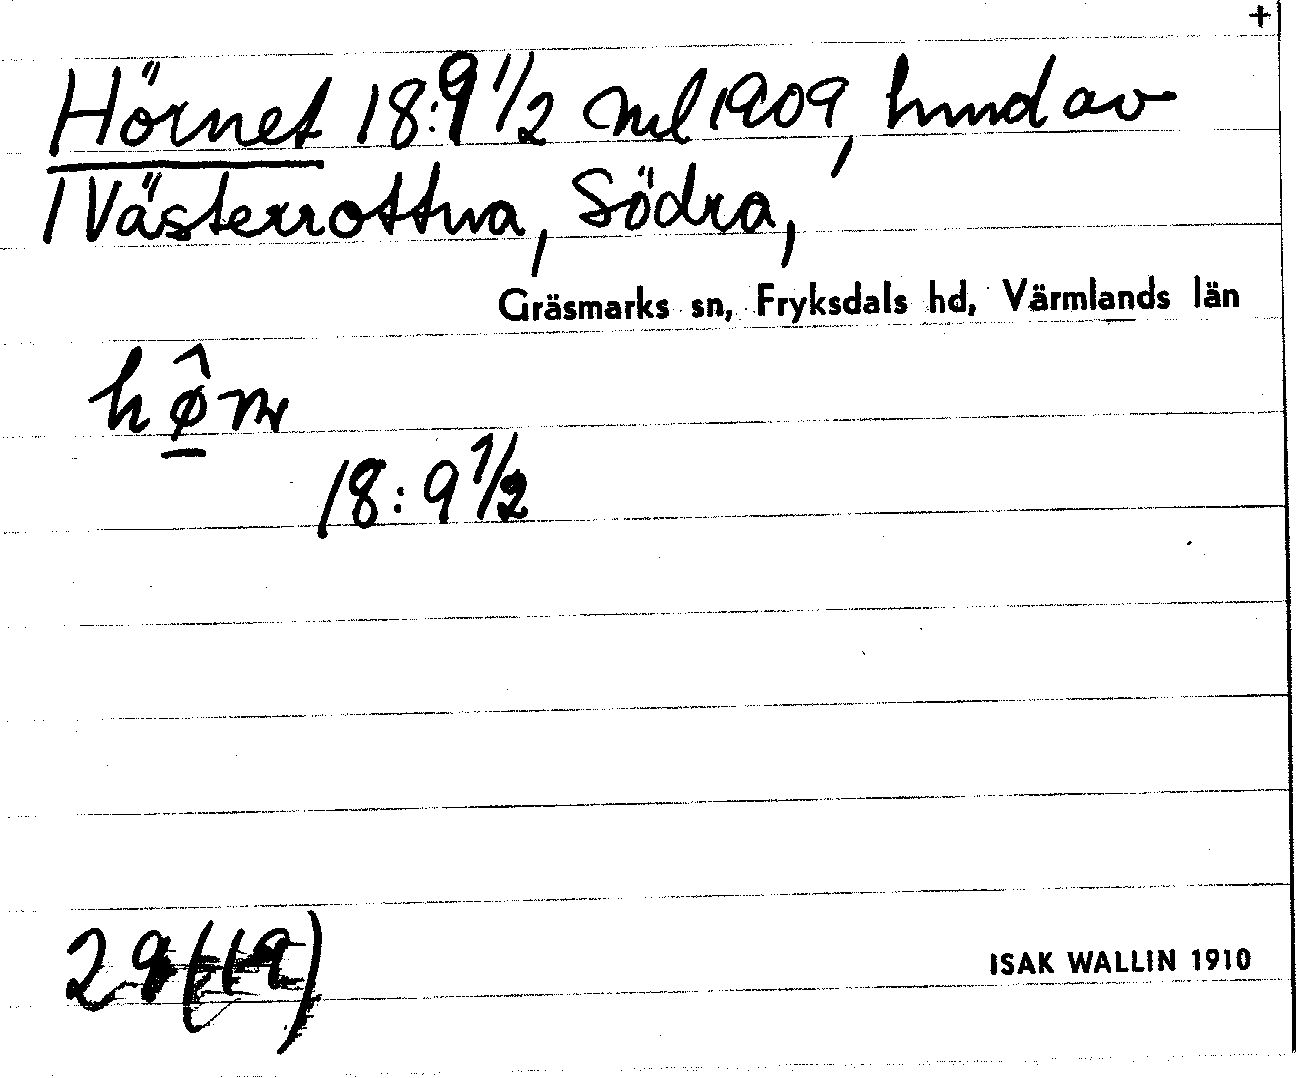 +
Hörnet 18:9 1/2 Ml 1909, hmd av
1 Västerrottna, Södra,
Gräsmarks sn, Fryksdals hd, Värmlands län
18:9 1/2
29 (19)
ISAK WALLIN 1910